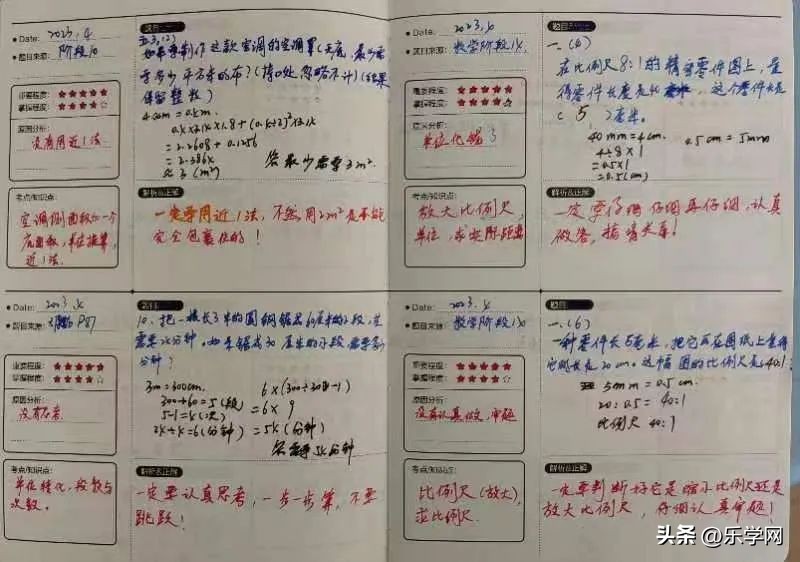 Date: 2023.4
题目来源: 阶段10
重要程度: ★★★★★
掌握程度: ★★★★☆
原因分析:
没有用近1法
考点/知识点:
空调侧面积和一个
底面积,单位换算,
近1法.
题目
五3,(2)
如果要制作这款空调的空调罩(无底,最少需
要多少平方米的布?(接口处忽略不计)(结果
保留整数)
= 2.2608 + 0.1256
≈ 3 (m²)
答最少需要3m².
解析&正解
一定要用近1法,不然用2m²是不能
完全包裹住的!
Date: 2023.4
题目来源: 数学阶段1
重要程度: ★★★★★
掌握程度: ★★★★☆
原因分析:
单位化错了
考点/知识点:
放大比例尺,
单位,求实际距离
题目
一.(6)
在比例尺8:1的精密零件图上,量
得零件长度是40毫米,这个零件长是
( 5 )毫米.
40mm = 4cm. 0.5cm = 5mm
4÷8×1
=0.5×1
=0.5(cm)
解析&正解
一定要仔细仔细再仔细,认真
做答,搞清关系!
Date: 2023.4
P87
重要程度: ★★★★★
掌握程度: ★★★★☆
原因分析:
没有思考.
考点/知识点:
单位转化,段数与
次数.
题目
10.把一根长3米的圆钢锯成60厘米的小段,共
需要24分钟.如果锯成30厘米的小段需要多少
分钟?
3m = 300cm. 6×(300÷30-1)
300÷60=5(段) =6×9
5-1=4(次) =54(分钟)
24÷4=6(分钟) 答需要54分钟
解析&正解
一定要认真思考,一步一步算,不要
跳跃!
Date: 2023.4
题目来源: 数学阶段10
重要程度: ★★★★★
掌握程度: ★★★★☆
原因分析:
没有认真做,审题
考点/知识点:
比例尺(放大),
求比例尺.
题目
一.(6)
一种零件长5毫米,把它画在图纸上量得
它的长是20cm.这幅图的比例尺是40:1
5mm = 0.5cm.
20:0.5=40:1
比例尺 40:1
解析&正解
一定要判断好它是缩小比例尺还是
放大比例尺,仔细认真审题!
头条 @乐学网